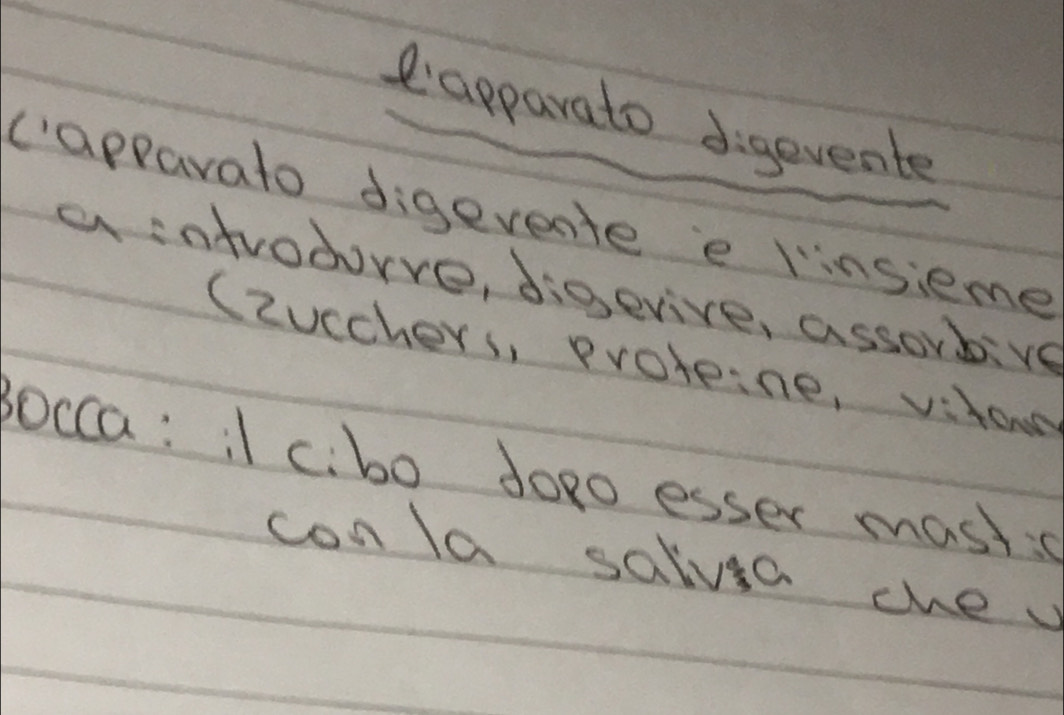 l'apparato digerente
L'apparato digerente è l'insieme
a introdurre, digerire, assorbire
(zuccheri, proteine,
Bocca: il cibo dopo esser
con la saliva che